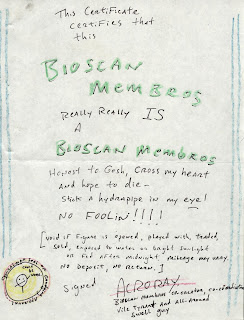 This Certificate
certifies that
this
BIOSCAN
MEMBROS
Really Really IS
A
BIOSCAN MEMBROS
Honest to Gosh, cross my heart
and hope to die-
stick a hydrapipe in my eye!
NO FOOLIN!!!!
[Void if figure is opened, played with, traded,
sold, exposed to water or bright sunlight
or fed after midnight, mileage may vary.
No deposit, No return.]
signed ACRORAY
Bioscan Membros co-creator, co-
Vile Tyrant and All-Around
Swell guy